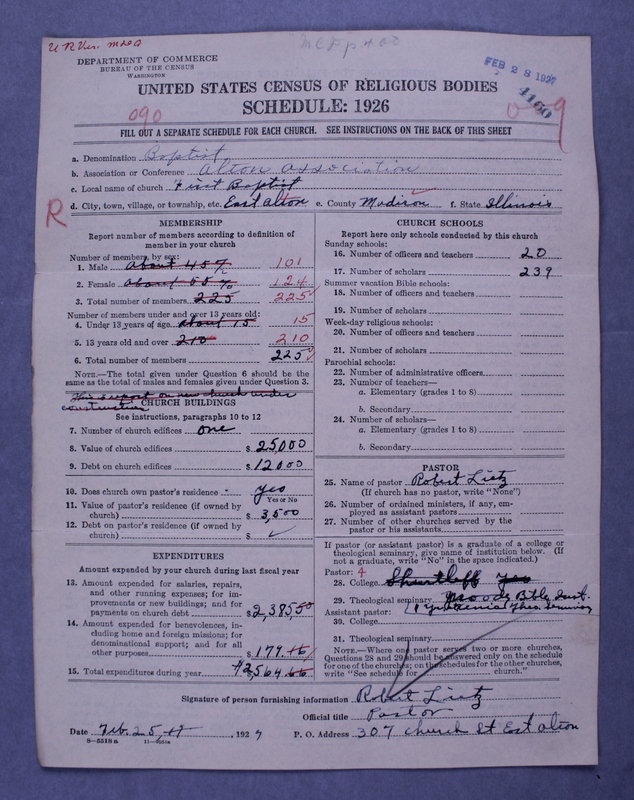 U R Ver.
DEPARTMENT OF COMMERCE
BUREAU OF THE CENSUS
WASHINGTON
FEB 28 1927
4160
UNITED STATES CENSUS OF RELIGIOUS BODIES
SCHEDULE: 1926
090
FILL OUT A SEPARATE SCHEDULE FOR EACH CHURCH. SEE INSTRUCTIONS ON THE BACK OF THIS SHEET
a. Denomination Baptist
b. Association or Conference Alton Association
c. Local name of church First Baptist
d. City, town, village, or township, etc. East Alton e. County Madison f. State Illinois
R
MEMBERSHIP
Report number of members according to definition of
member in your church
Number of members, by sex:
1. Male about 45% 101
2. Female about 55% 124
3. Total number of members 225 225
Number of members under and over 13 years old:
4. Under 13 years of age about 15 15
5. 13 years old and over 210 210
6. Total number of members 225
NOTE.—The total given under Question 6 should be the
same as the total of males and females given under Question 3.
This report on new church under
construction
CHURCH BUILDINGS
See instructions, paragraphs 10 to 12
7. Number of church edifices one
8. Value of church edifices $ 25000
9. Debt on church edifices $ 12000
10. Does church own pastor's residence yes
Yes or No
11. Value of pastor's residence (if owned by
church) $ 3,500
12. Debt on pastor's residence (if owned by
church) $
EXPENDITURES
Amount expended by your church during last fiscal year
13. Amount expended for salaries, repairs,
and other running expenses; for im-
provements or new buildings; and for
payments on church debt $ 2,385.50
14. Amount expended for benevolences, in-
cluding home and foreign missions; for
denominational support; and for all
other purposes $ 179.16
15. Total expenditures during year $2,564.66
CHURCH SCHOOLS
Report here only schools conducted by this church
Sunday schools:
16. Number of officers and teachers 20
17. Number of scholars 239
Summer vacation Bible schools:
18. Number of officers and teachers
19. Number of scholars
Week-day religious schools:
20. Number of officers and teachers
21. Number of scholars
Parochial schools:
22. Number of administrative officers
23. Number of teachers—
a. Elementary (grades 1 to 8)
b. Secondary
24. Number of scholars—
a. Elementary (grades 1 to 8)
b. Secondary
PASTOR
25. Name of pastor Robert Lietz
(If church has no pastor, write "None")
26. Number of ordained ministers, if any, em-
ployed as assistant pastors
27. Number of other churches served by the
pastor or his assistants
If pastor (or assistant pastor) is a graduate of a college or
theological seminary, give name of institution below. (If
not a graduate, write "No" in the space indicated.)
Pastor: 4
28. College Shurtleff Yes
29. Theological seminary Moody Bible Inst.
Theo. Seminary
Assistant pastor:
30. College
31. Theological seminary
NOTE.—Where one pastor serves two or more churches,
Questions 28 and 29 should be answered only on the schedule
for one of the churches; on the schedules for the other churches,
write "See schedule for church."
Signature of person furnishing information Robert Lietz
Official title Pastor
Date Feb. 25, 1927 P. O. Address 307 Church St East Alton
8—5518 a